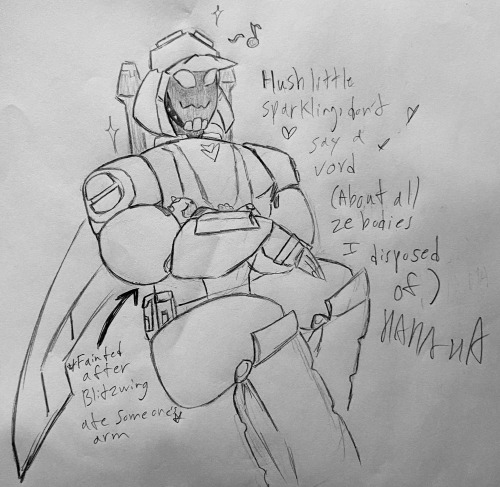 Hush little
sparkling, don't
say a
vord
(About all
ze bodies
I disposed
of)
HAHAHA
*Fainted
after
Blitzwing
ate someone's
arm*